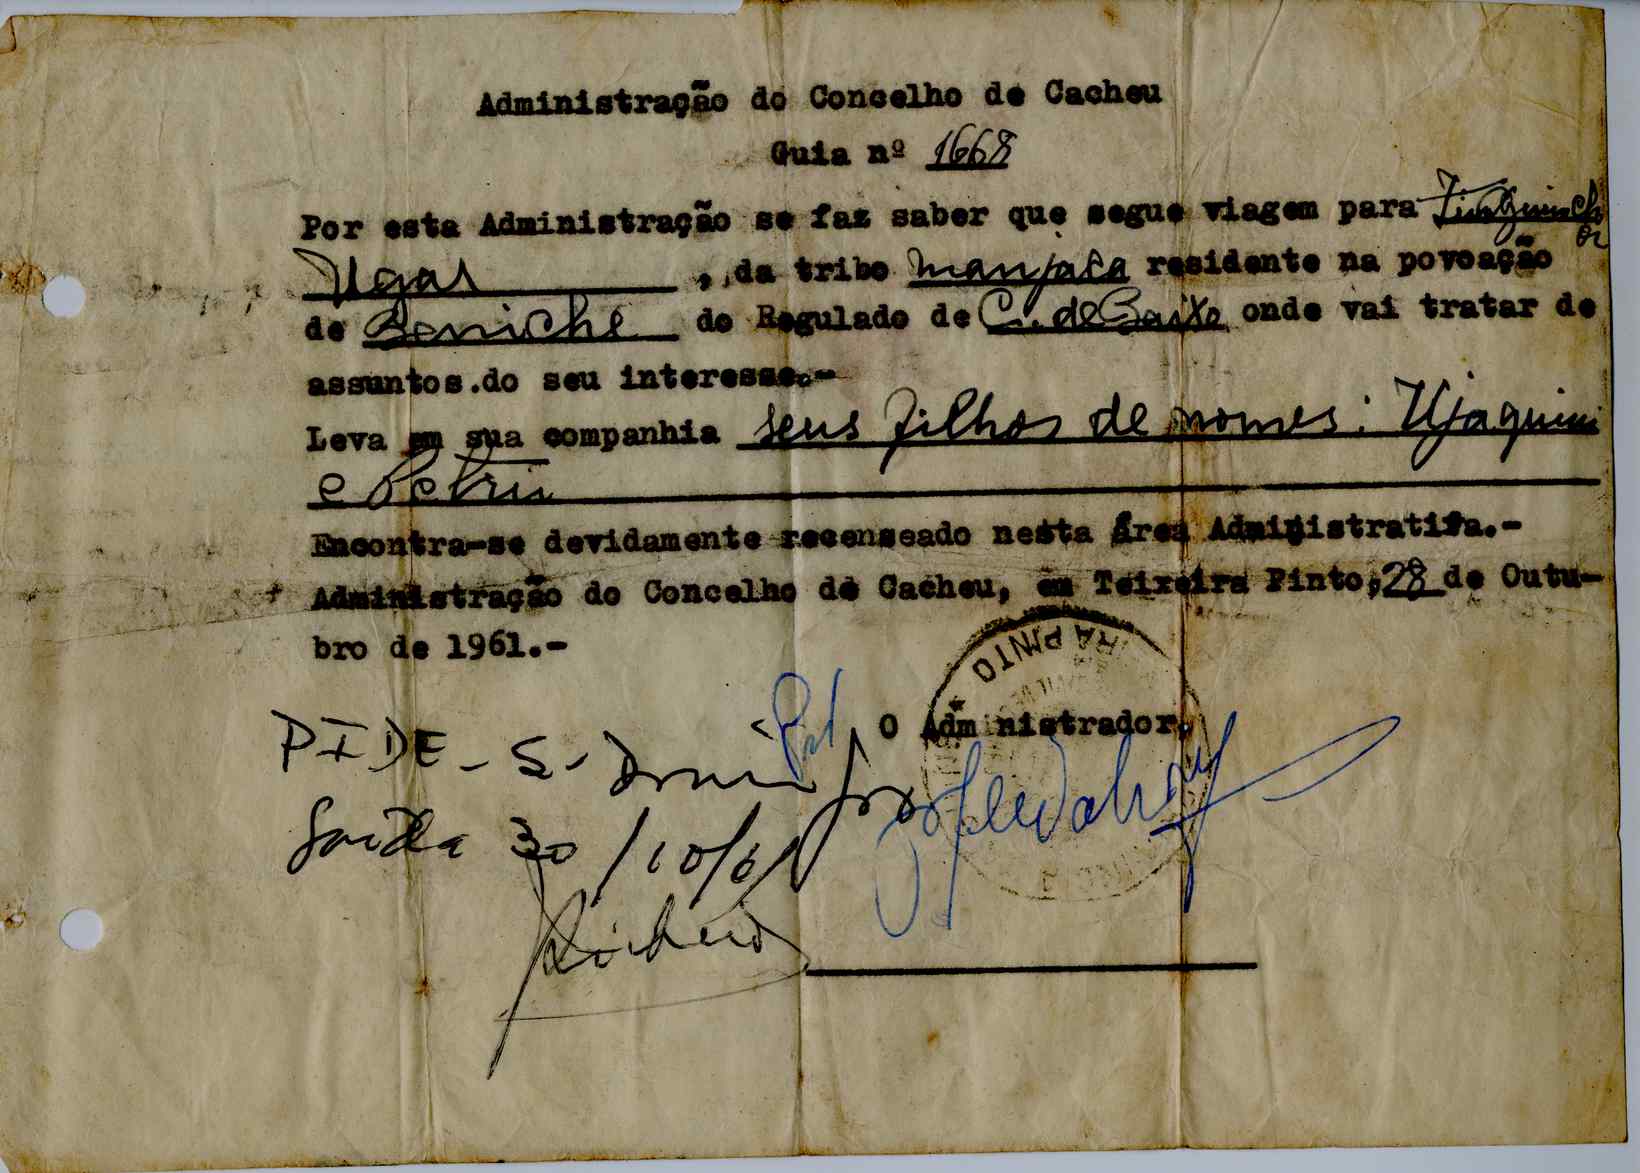 Administração do Concelho de Cacheu
Guia nº 1668
Por esta Administração se faz saber que segue viagem para Zinguinchor
Ugar, da tribo manjaca residente na povoação
de Beniche do Regulado de C. de Baixo onde vai tratar de
assuntos.do seu interesse.-
Leva em sua companhia seus filhos de nomes: Ujaquim
e Petriu
Encontra-se devidamente recenseado nesta Área Administrativa.-
Administração do Concelho de Cacheu, em Teixeira Pinto,28 de Outu-
bro de 1961.-
RA PINTO
O Administrador,
PIDE - S. Domingos
Saida 30/10/61